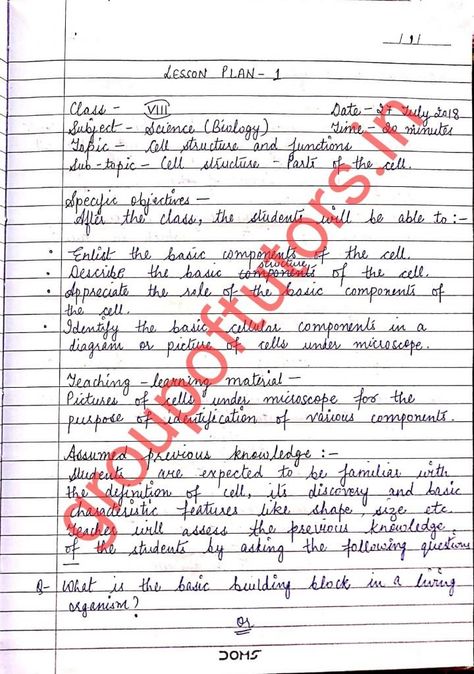 / 9 /
LESSON PLAN - 1
Class - VIII Date - 27 July 2018
Subject - Science (Biology) Time - 20 minutes
Topic - Cell structure and functions
Sub-topic - Cell structure - Parts of the cell.
Specific objectives -
After the class, the students will be able to :-
• Enlist the basic components of the cell.
• Describe the basic components structure of the cell.
• Appreciate the role of the basic components of
the cell.
• Identify the basic cellular components in a
diagram or picture of cells under microscope.
Teaching - learning material -
Pictures of cells under microscope for the
purpose of identification of various components.
Assumed previous knowledge :-
Students are expected to be familiar with
the definition of cell, its discovery and basic
characteristic features like shape, size etc.
Teacher will assess the previous knowledge
of the students by asking the following questions
Q- What is the basic building block in a living
organism?
or
DOMS
groupoftutors.in